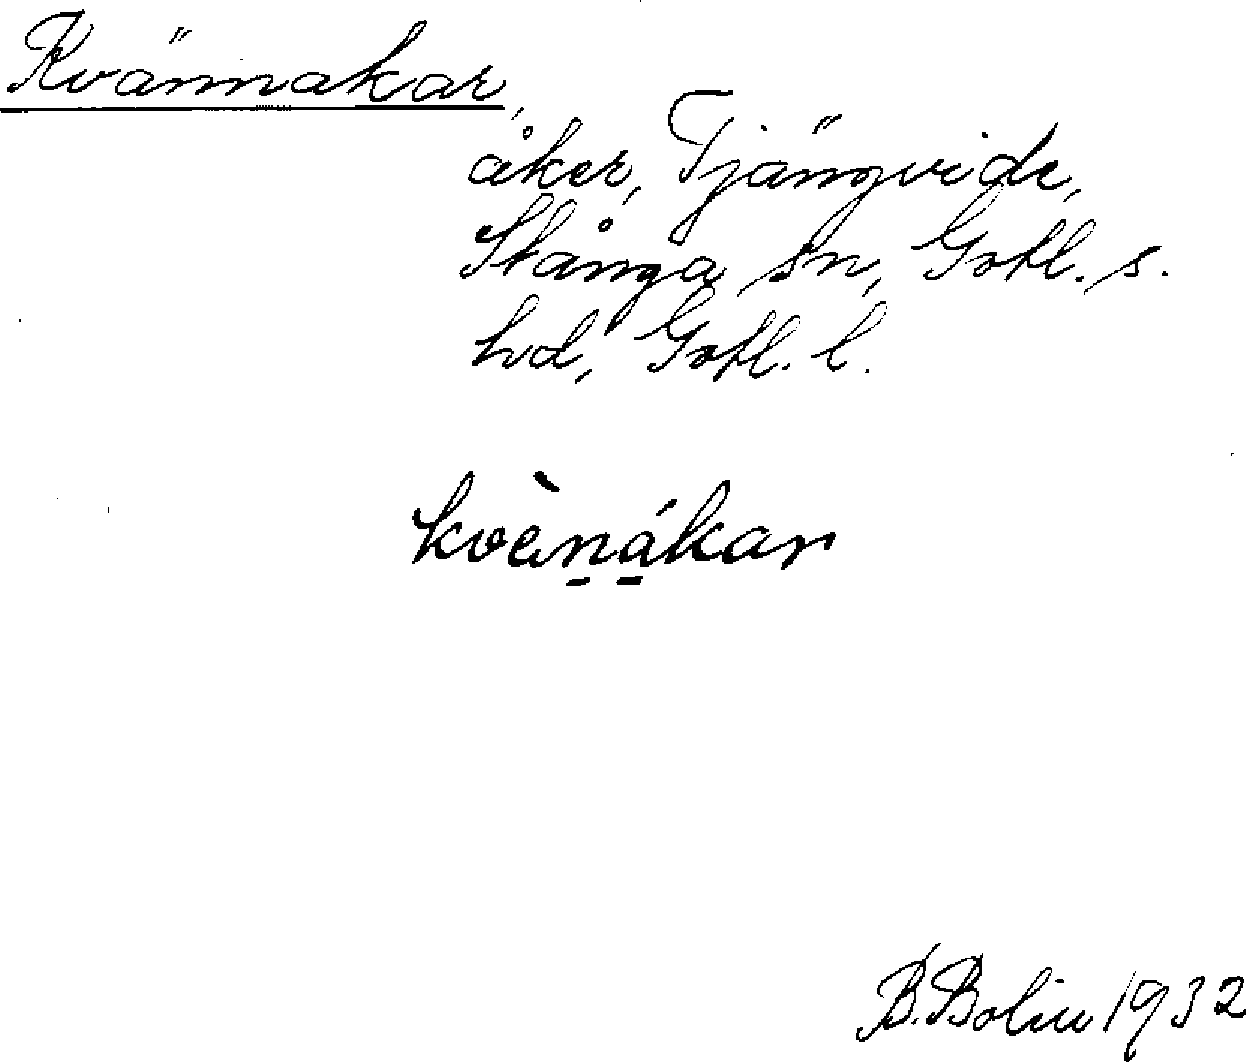 Kvännakar,
åker, Tjängvide,
Stånga sn, Gotl. s.
hd, Gotl. l.
kvèn̠á̠kar
B. Bolin 1932